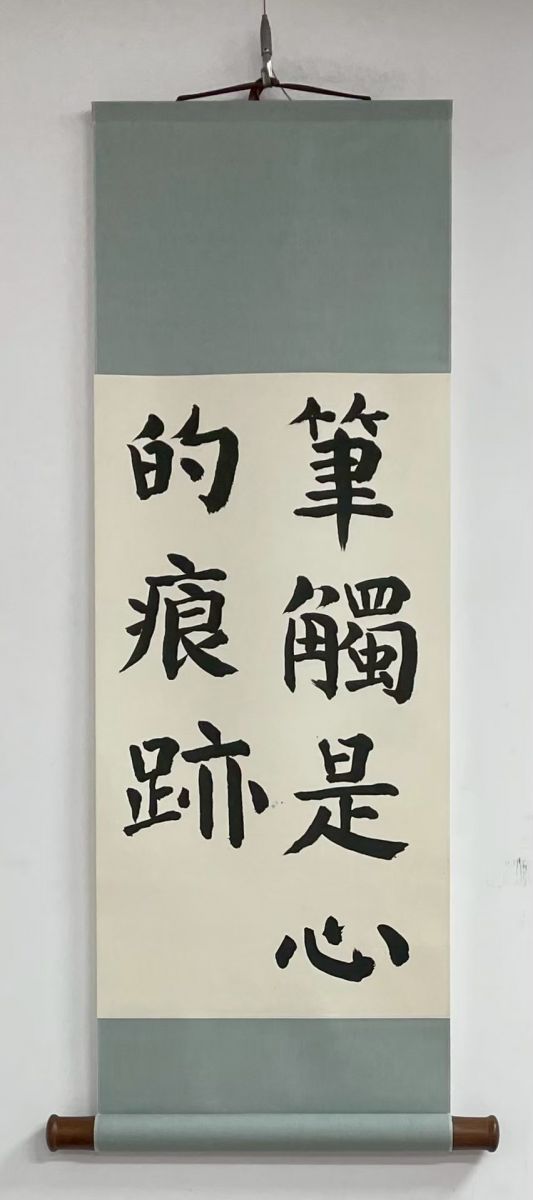 筆觸是心
的痕跡